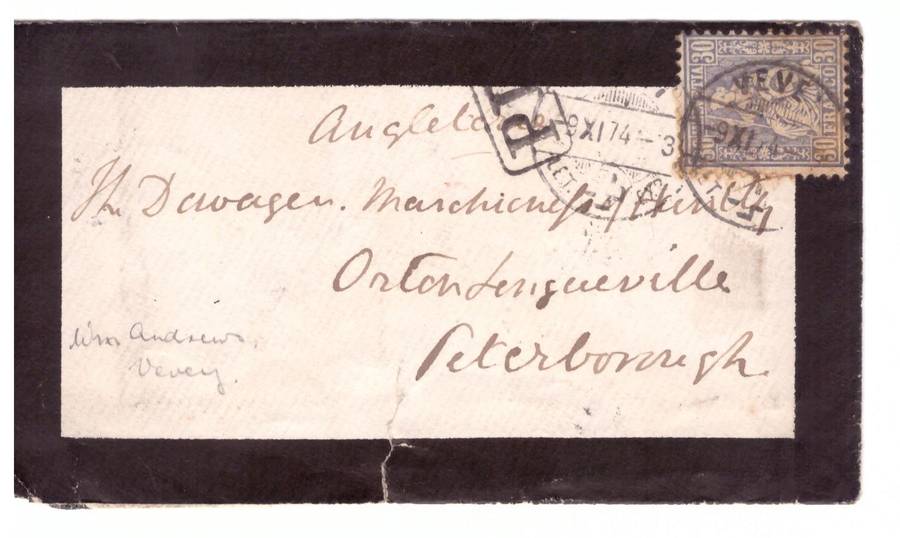 30 30
FRANCO
30
VEVEY
9 XI 74 - 3
9 XI 74
PD
LETTRES
Angleterre
The Dowager. Marchioness of Huntly
Orton Longueville
Peterborough.
Miss Andrews,
Vevey.